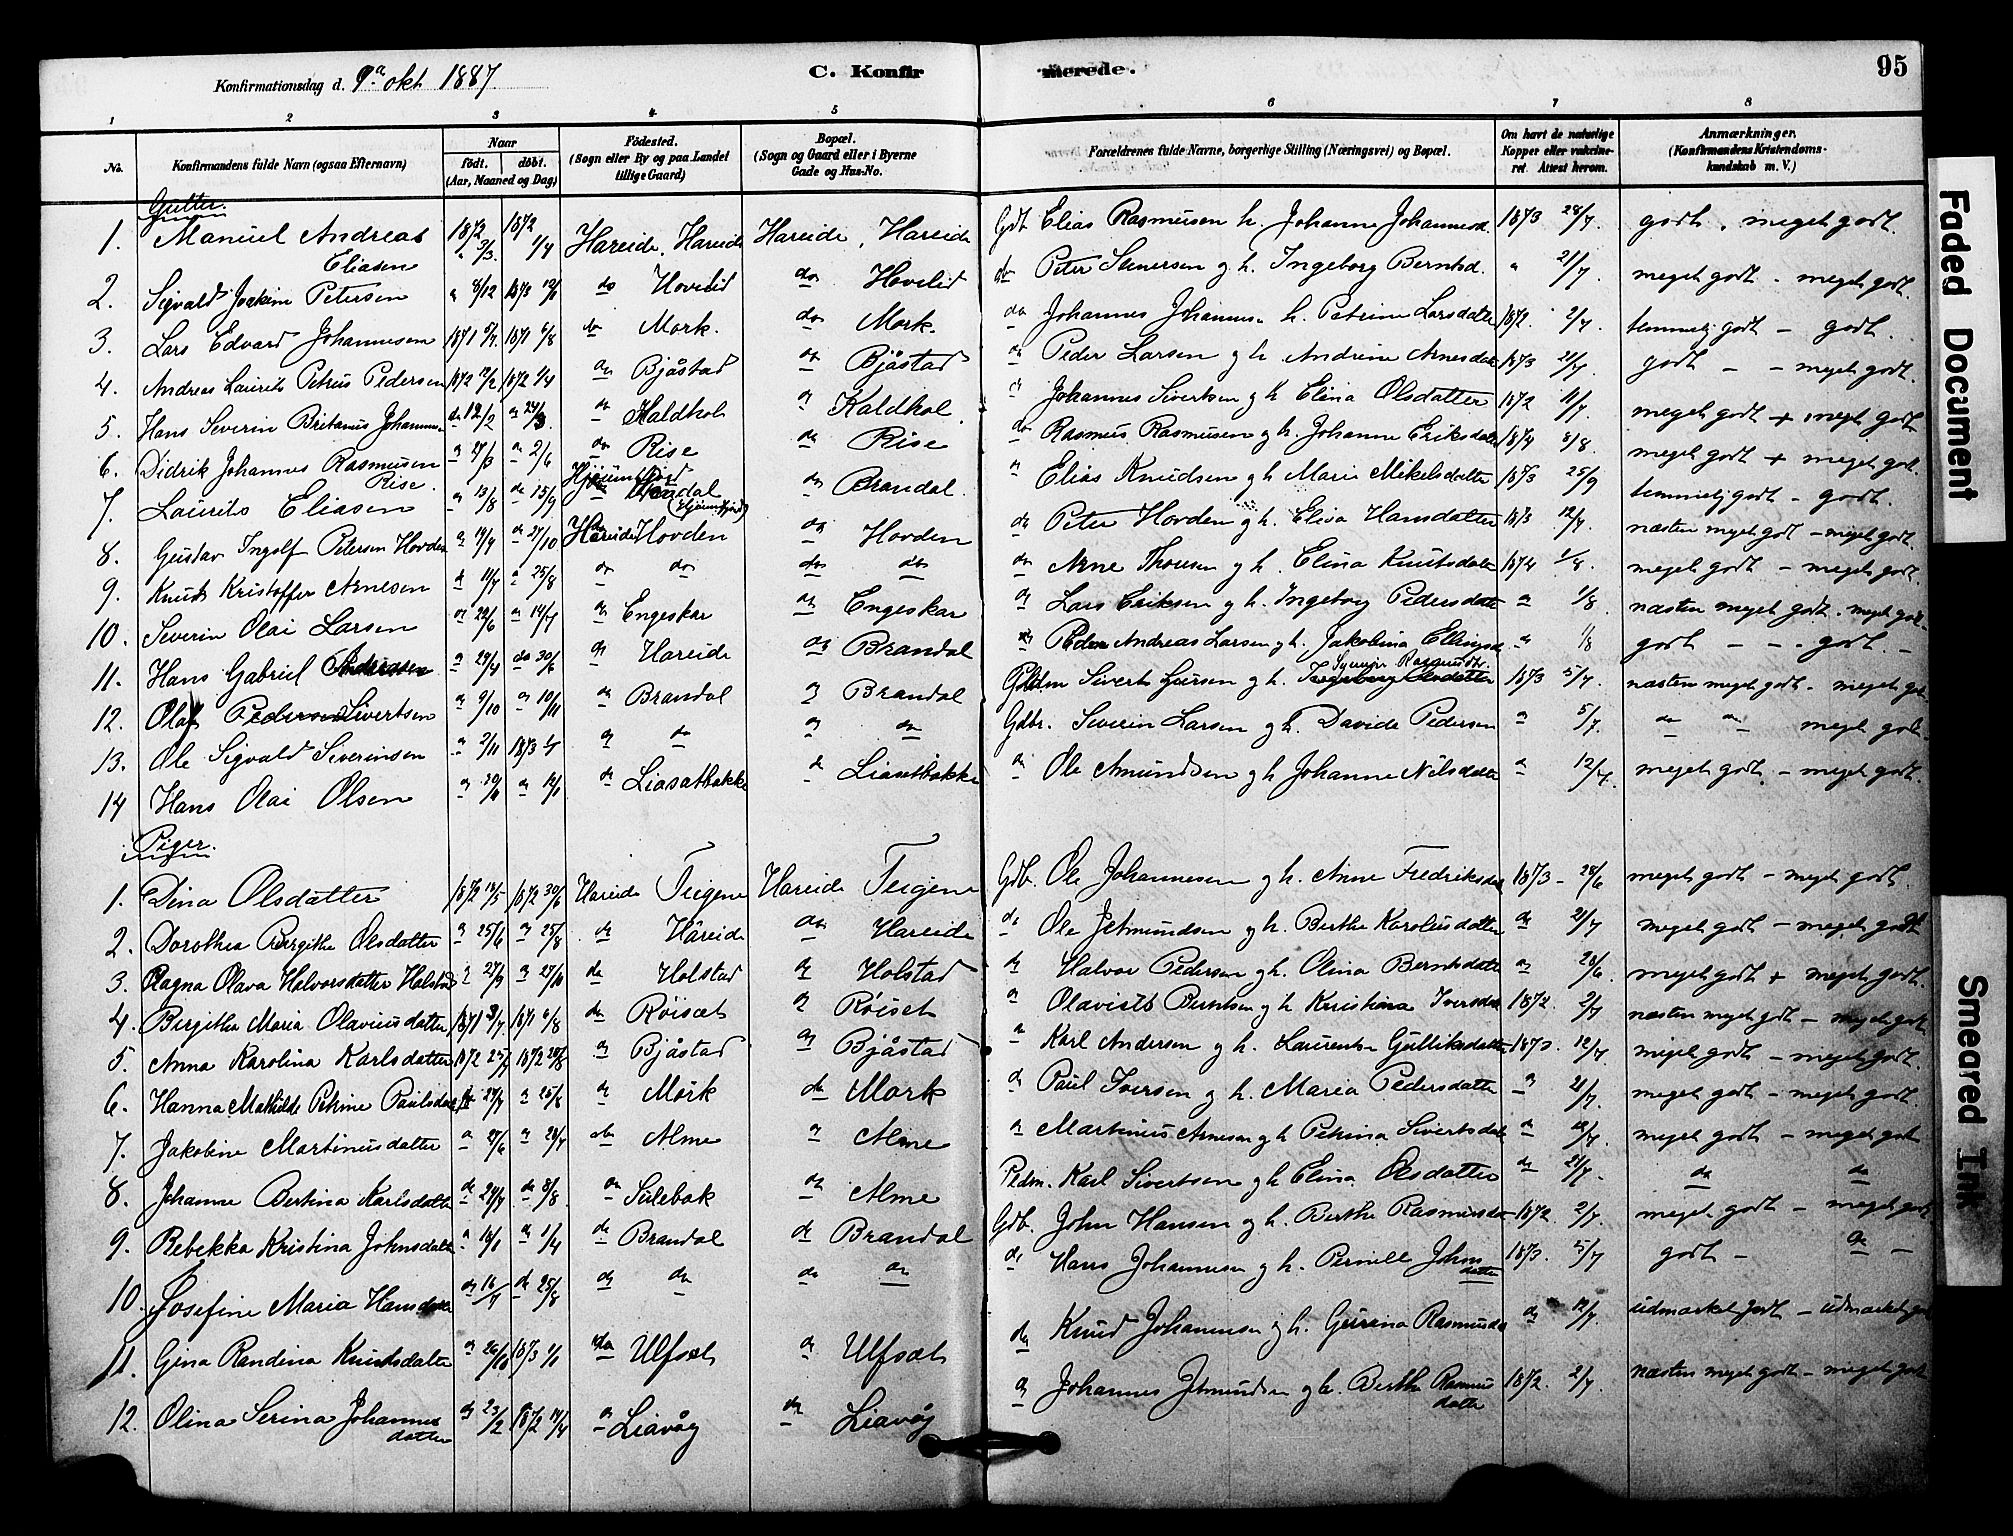 Konfirmationsdag d. 9de okt 1887.
C. Konfirmerede.
95
1 2 3 4 5 6 7 8
No.
Konfirmandens fulde Navn (ogsaa Efternavn)
Naar
født. døbt.
(Aar, Maaned og Dag)
Fødested.
(Sogn eller By og paa Landet tillige Gaard)
Bopæl.
(Sogn og Gaard eller i Byerne Gade og Hus-No.
Forældrenes fulde Navne, borgerlige Stilling (Næringsvei) og Bopæl.
Om havt de naturlige Kopper eller vaccineret. Attest herom.
Anmærkninger.
(Konfirmandens Kristendomskundskab m. V.)
Gutter.
1. Manuel Andreas Eliasen 1872 3/3 1872 1/4 Hareide, Hareide Hareide, Hareide Gdb. Elias Rasmusen h. Johanne Johannesd. 1873 28/7. godt. meget godt.
2. Sigvald Joakim Petersen " 8/12 1873 12/1 do Hovelid do Hovelid do Peter Stenersen og h. Ingeborg Berntsd. " 21/7. meget godt. - meget godt.
3. Lars Edvard Johannesen 1871 5/7 1871 6/8 do Mork. do Mork. do Johannes Johannes. h. Petrine Larsdatter 1872. 2/7. temmelig godt - godt.
4. Andreas Laurits Petrus Pedersen 1872 12/2 1872 1/4 do Bjåstad do Bjåstad do Peder Larsen og h. Andrine Arnesdatter 1873 21/7. godt - - meget godt.
5. Hans Severin Britanus Johannes. do 12/2 do 24/3. do Kaldhol do Kaldhol. do Johannes Sivertsen og h. Elina Olsdatter 1872 11/7. meget godt + meget godt
6. Didrik Johannes Rasmusen Rise. do 27/3 do 2/6 do Rise do Rise do Rasmus Rasmusen og h. Johanne Eriksdatter 1874 8/8. meget godt + meget godt
7. Laurits Eliasen do 13/8 do 15/9 Hjørundfjord (Hjørundfjord) do Brandal. do Elias Knudsen og h. Marie Mikelsdatter 1873 25/9 temmelig godt - godt.
8. Gustav Ingolf Petersen Hovden do 14/9 do 27/10 Hareide Hovden do Hovden do Peter Hovden og h. Elisa Hansdatter 1873 12/7. næsten meget godt - meget godt.
9. Knut Kristoffer Arnesen do 11/7 do 25/8 do do do do do Arne Thoresen og h. Elina Knutsdatter 1874 1/8. meget godt - meget godt.
10. Severin Olai Larsen do 22/6 do 14/7 do Engeskar do Engeskar do Lars Eriksen og h. Ingeborg Pedersdatter do 1/8. næsten meget godt. meget godt
11. Hans Gabriel Andersen do 29/4 do 30/6 do Hareide do Brandal do Peder Andreas Larsen og h. Jakobina Ellingsd. " 1/8 godt - - - godt. -
12. Olaf Pedersen Sivertsen do 9/10 do 10/11 do Brandal do Brandal Sivert Larsen og h. Ingeborg Olsdatter 1873 5/7. næsten meget godt. meget godt
13. Ole Sigvald Siverinsen do 2/11 1873 1/1 do do do do Gdbr. Severin Larsen og h. Davide Pedersen do 5/7. do do meget godt.
14 Hans Olai Olsen do 20/11 do 12/1 do Liasetbakke do Liasetbakke do Ole Amundsen og h. Johanne Nilsdatter do 12/7. meget godt. - meget godt.
Piger.
1. Dina Olsdatter 1872 13/5 1872 30/6 Hareide Teigene Hareide Teigene Gdb. Ole Johannesen og h. Anne Fredriksdatter 1873 - 28/6 meget godt - meget godt.
2. Dorothea Birgithe Olsdatter do 25/6 do 25/8 do Hareide do Hareide do Ole Jetmundsen og h. Berthe Karolusdatter do 2/7 meget godt - meget godt
3. Ragna Olava Halvorsdatter Holstad do 27/9 do 27/10 do Holstad do Holstad do Halvor Pedersen og h. Olina Berntsdatter do 28/6 meget godt + meget godt.
4. Birgitha Maria Olaviusdatter 1871 3/7. 1871 6/8 do Röiset do Röiset do Olavius Berntsen og h. Kristiana Iversdatter 1872. 2/7 næsten meget godt - meget godt
5. Anna Karolina Karlsdatter 1872 25/7 1872 28/8 do Bjåstad do Bjåstad do Karl Andersen og h. Laurentse Gulliksdatter 1873. 12/7. meget godt - meget godt.
6. Hanna Mathilde Petrine Paulsdatter do 27/7 do 25/8 do Mork do Mork do Paul Iversen og h. Maria Pedersdatter do 21/7. meget godt - meget godt.
7. Jakobine Martinusdatter do 27/6 do 28/7 do Alme do Alme do Martinus Arnesen og h. Petrina Sivertsdatter do 12/7. meget godt - meget godt
8. Johanne Bertina Karlsdatter do 24/7 do 8/8 do Sulebak do Alme Pdm. Karl Sivertsen og h. Elina Olsdatter do 21/7. do do
9. Rebekka Kristina Johnsdatter do 14/1 do 1/4 do Brandal do Brandal Gdb. John Hansen og h. Berthe Rasmusdatter 1872. 2/7. meget godt - meget godt
10. Josefine Maria Hansdatter do 16/7 do 25/8 do do do do do Hans Johannesen og h. Pernille Johnsdatter 1873. 5/7 godt - do -
11. Gina Randina Knutsdatter do 26/10 1873 1/1 do Ulfset do Ulfset do Knud Johannesen og h. Gurina Rasmusdatter do 12/7. udmærket godt - udmærket godt
12. Olina Serina Johannesdatter do 23/2 1872 14/4 do Liavåg do Liavåg do Johannes Jetmundsen og h. Berthe Rasmusdatter 1872. 2/7. næsten meget godt - meget godt
Faded Document
Smeared Ink